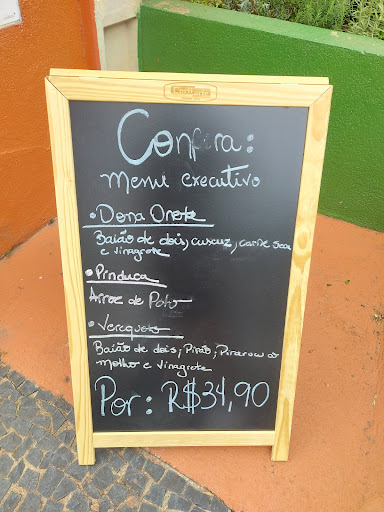 Confira:
menu executivo
• Dona Onete
Baião de dois, cuscuz, carne seca
e vinagrete
• Pinduca
Arroz de Pato
• Verequete
Baião de dois, Pirão, Pirarucu ao
molho e vinagrete
Por: R$34,90